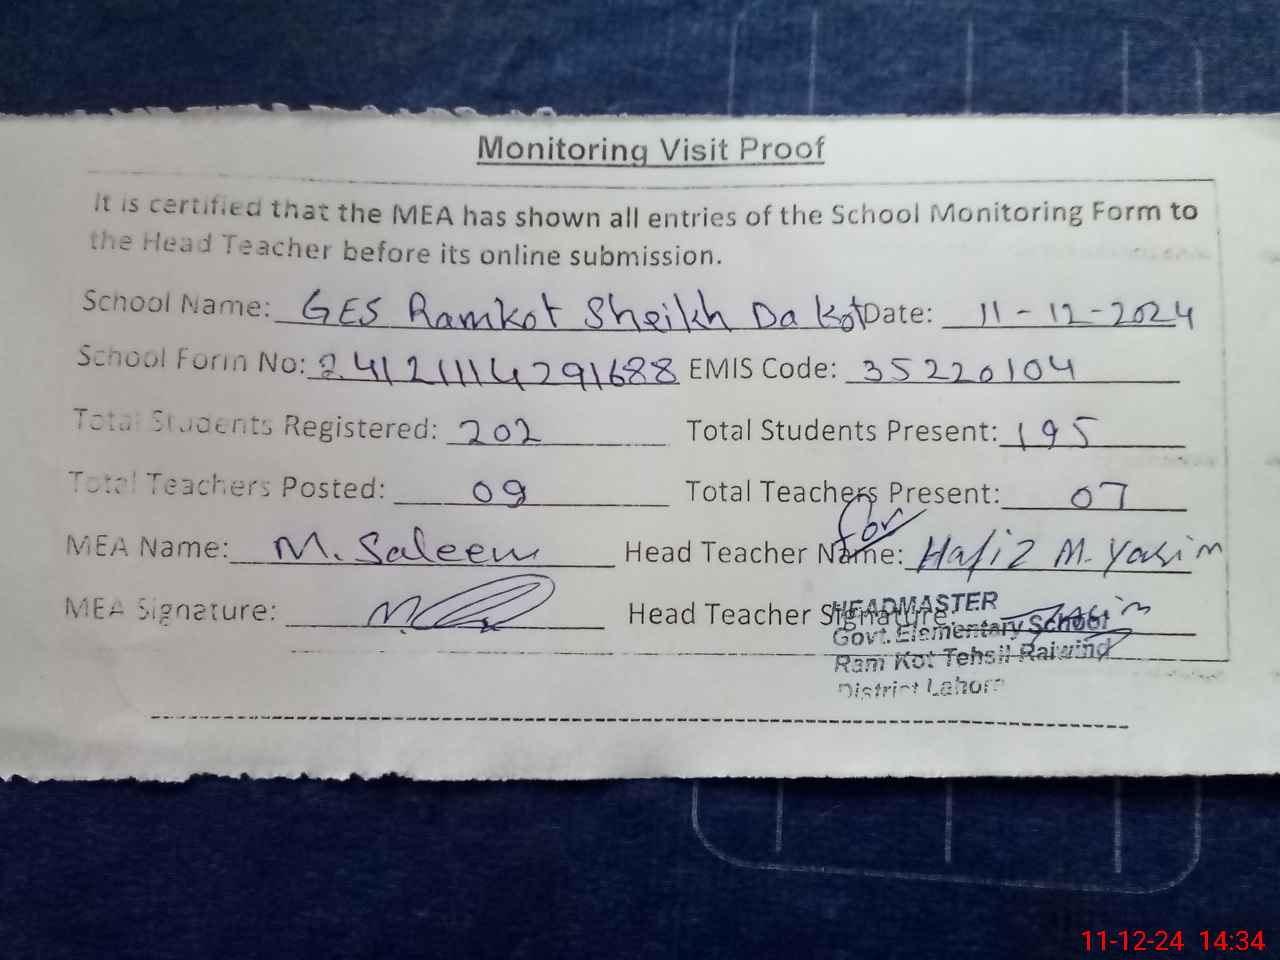 Monitoring Visit Proof
It is certified that the MEA has shown all entries of the School Monitoring Form to
the Head Teacher before its online submission.
School Name: GES Ramkot Sheikh Da Kot Date: 11-12-2024
School Form No: 241211114291688 EMIS Code: 35220104
Total Students Registered: 202 Total Students Present: 195
Total Teachers Posted: 09 Total Teachers Present: 07
for
MEA Name: M. Saleem Head Teacher Name: Hafiz M. Yasim
MEA Signature: Head Teacher Signature: Yasim
HEADMASTER
Govt. Elementary School
Ram Kot Tehsil Raiwind
District Lahore
11-12-24 14:34